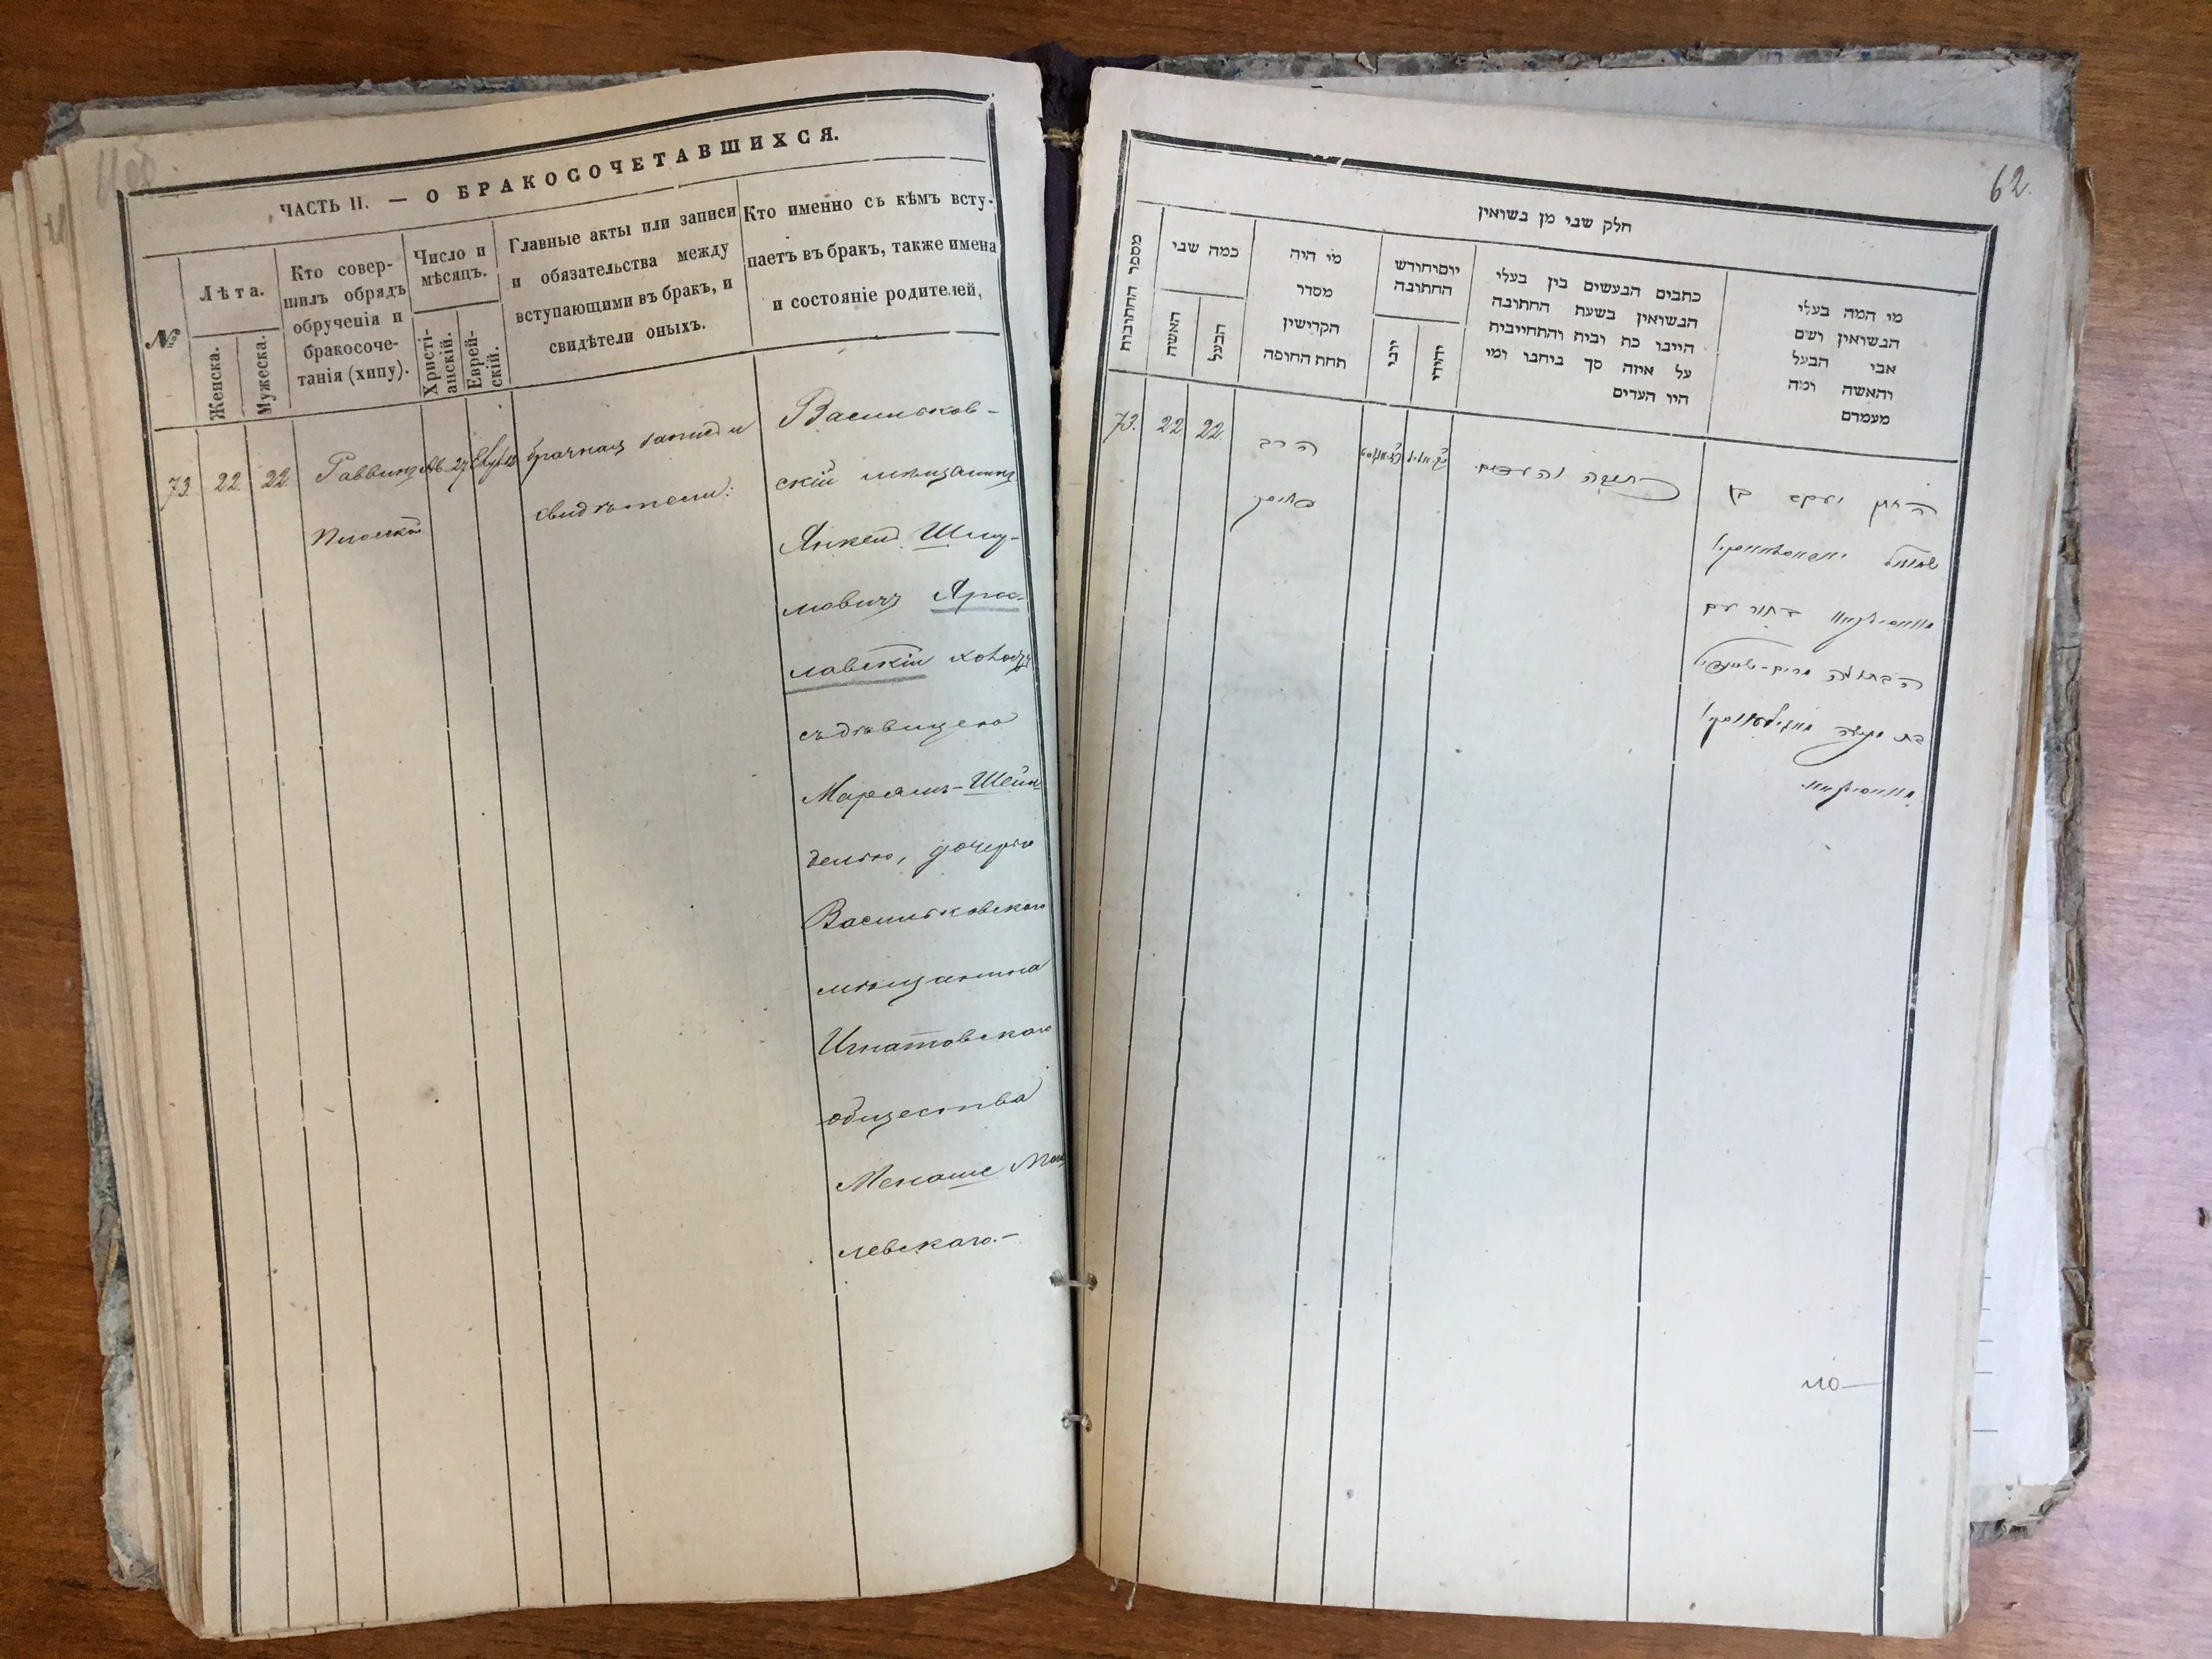 ЧАСТЬ II. — О БРАКОСОЧЕТАВШИХСЯ.
№
Лѣта.
Женска.
Мужеска.
Кто совер-
шилъ обрядъ
обрученія и
бракосоче-
танія (хипу).
Число и
мѣсяцъ.
Христі-
анскій.
Еврей-
скій.
Главные акты или записи
и обязательства между
вступающими въ бракъ, и
свидѣтели оныхъ.
Кто именно съ кѣмъ всту-
паетъ въ бракъ, также имена
и состояніе родителей,
73. 22. 22.
Раввинъ
Ав. 27
брачная запись и
свидѣтели:
Васильков-
скій мѣщанинъ
Янкель Шму-
ловичъ Яро-
славскій холостъ
съ дѣвицею
Маріамъ-Шейн-
делью, дочерью
Васильковскаго
мѣщанина
Игнатовскаго
общества
Менаше
левскаго.—
62.
חלק שני מן נשואין
מספר החתונות
כמה שני
האשה
הבעל
מי היה
מסדר
הקדישין
תחת החופה
יום וחודש
החתונה
יוני
יהודי
כתבים הנעשים בין בעלי
הנשואין בשעת החתונה
היינו כת ובית והתחייבית
על איזה סך ביחנו ומי
היו העדים
מי המה בעלי
הנשואין ושם
אבי הבעל
והאשה ומה
מעמדם
73. 22 22.
הרב
כתובה והעדים
החתן יעקב בן
שמואל יאראסלאווסקי
וואסילקאוו בחור עם
הבתולה מרים-שיינדיל
בת מנשה
וואסילקאוו.